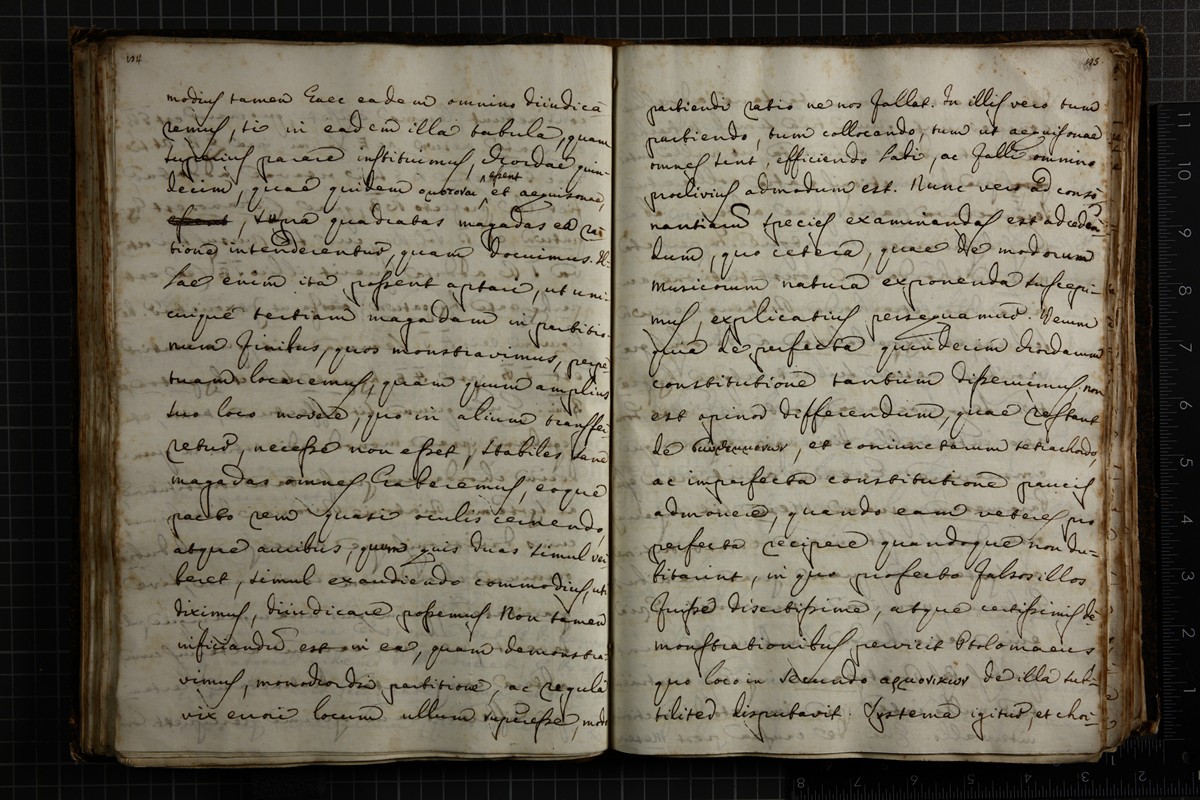 194
modius tamen haec eadem omnino diiudica
remus, si in eadem illa tabula, quam
superius parare instituimus, chordae quin-
decim, quae quidem ὁμότονοι essent et aequisonae,
supra quadratas magadas ea ra
tione intenderentur, quam docuimus. Il-
lae enim ita possent aptari, ut uni-
cuique tertiam magadam in partitio-
num finibus, quos monstravimus, perpe
tuam locaremus, quam quum amplius
suo loco movere, quo in alium transfer
retur, necesse non esset, stabiles sane
magadas omnes haberemus, eoque
pacto rem quasi oculis cernendo,
atque auribus, quum quis duas simul ver
beret, simul exaudiendo commodius, uti
diximus, diiudicare possemus. Non tamen
inficiandum est in ea, quam demonstra-
vimus, monochordi partitione, ac regula
vix errori locum ullum superesse, modo
195
partiendi ratio ne nos fallat. In illis vero tum
partiendo, tum collocando, tum ut aequisonae
omnes sint, efficiendo labi, ac falli omnino
proclivius admodum est. Nunc vero ad conso
nantiarum species examinandas est acceden-
dum, quo cetera, quae de modorum
musicorum natura exponenda suscepi-
mus, explicatius persequamur. Verum
quia de perfecta quindecim chordarum
constitutione tantum disseruimus, non
est opinor differendum, quae restant
de συνημμένων, et coniunctarum tetrachordo,
ac imperfecta constitutione paucis
admonere, quando eam veteres pro
perfecta recipere quandoque non du-
bitarint, in quo profecto falsos illos
fuisse disertissime, atque certissimis de
monstrationibus pervicit Ptolomaeus
quo loco in secundo ἁρμονικῶν de illa sub-
tiliter disputavit. Systema igitur, et chor-